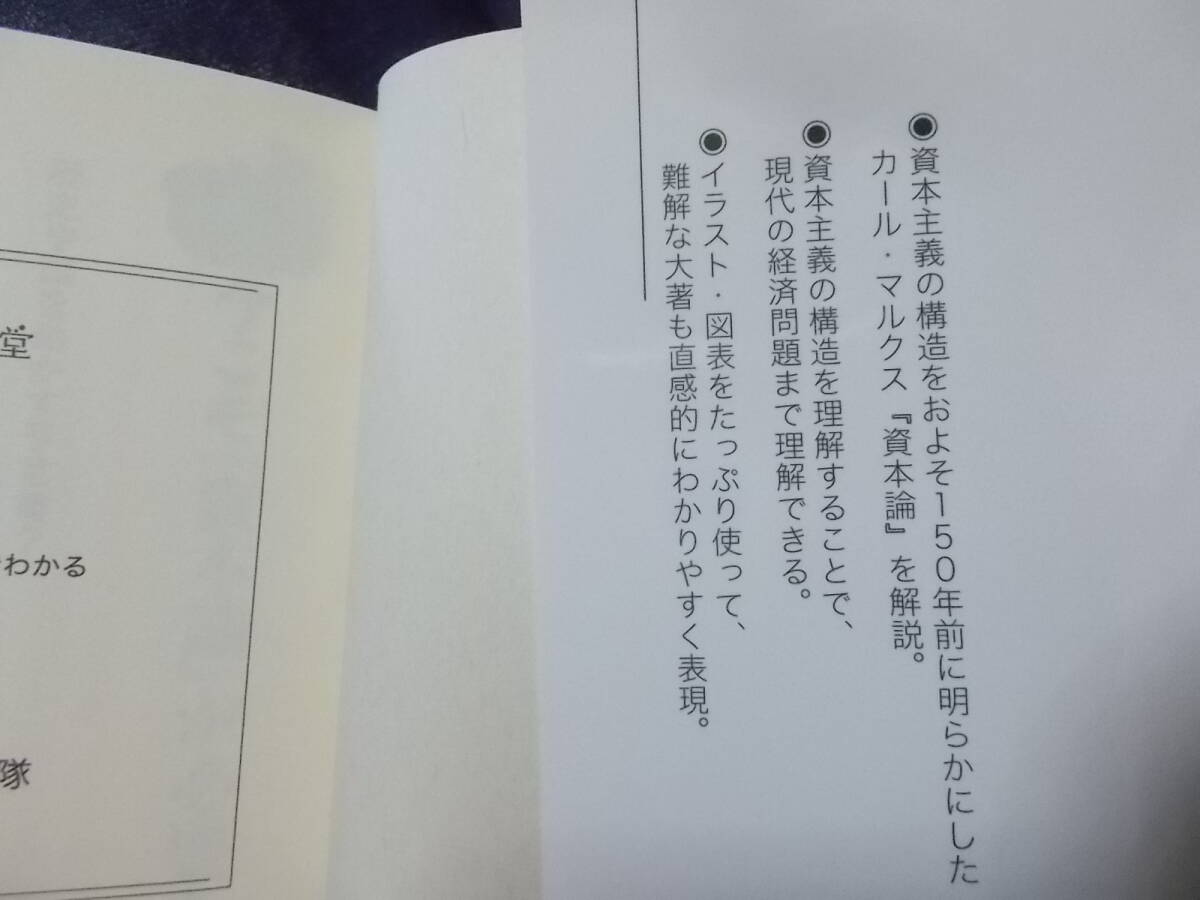 ◉資本主義の構造をおよそ150年前に明らかにした
カール・マルクス『資本論』を解説。
◉資本主義の構造を理解することで、
現代の経済問題まで理解できる。
◉イラスト・図表をたっぷり使って、
難解な大著も直感的にわかりやすく表現。
堂
わかる
隊